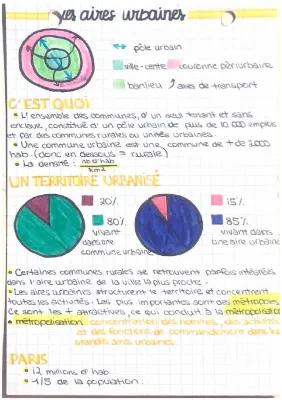 Les aires urbaines
pôle urbain
ville-centre couronne périurbaine
banlieu axes de transport
C'EST QUOI
• L'ensemble des communes, d'un seul tenant et sans
enclave, constitué d'un pôle urbain de plus de 10 000 emplois
et par des communes rurales ou unités urbaines.
• Une commune urbaine est une commune de + de 2000
hab. (donc en dessous = rurale)
• La densité : nb d'hab
km2
UN TERRITOIRE URBANISÉ
20% 15%
80% 85%
vivant vivant dans
dans une une aire urbaine
commune urbaine
• Certaines communes rurales se retrouvent parfois intégrées
dans l'aire urbaine de la ville la plus proche.
• Les aires urbaines structurent le territoire et concentrent
toutes les activités. Les plus importantes sont des métropoles
Ce sont les + attractives, ce qui conduit à la métropolisation
• métropolisation: concentration des hommes, des activités
et des fonctions de commandement dans les
grandes aires urbaines.
PARIS
• 12 millions d'hab.
• 1/5 de la population.